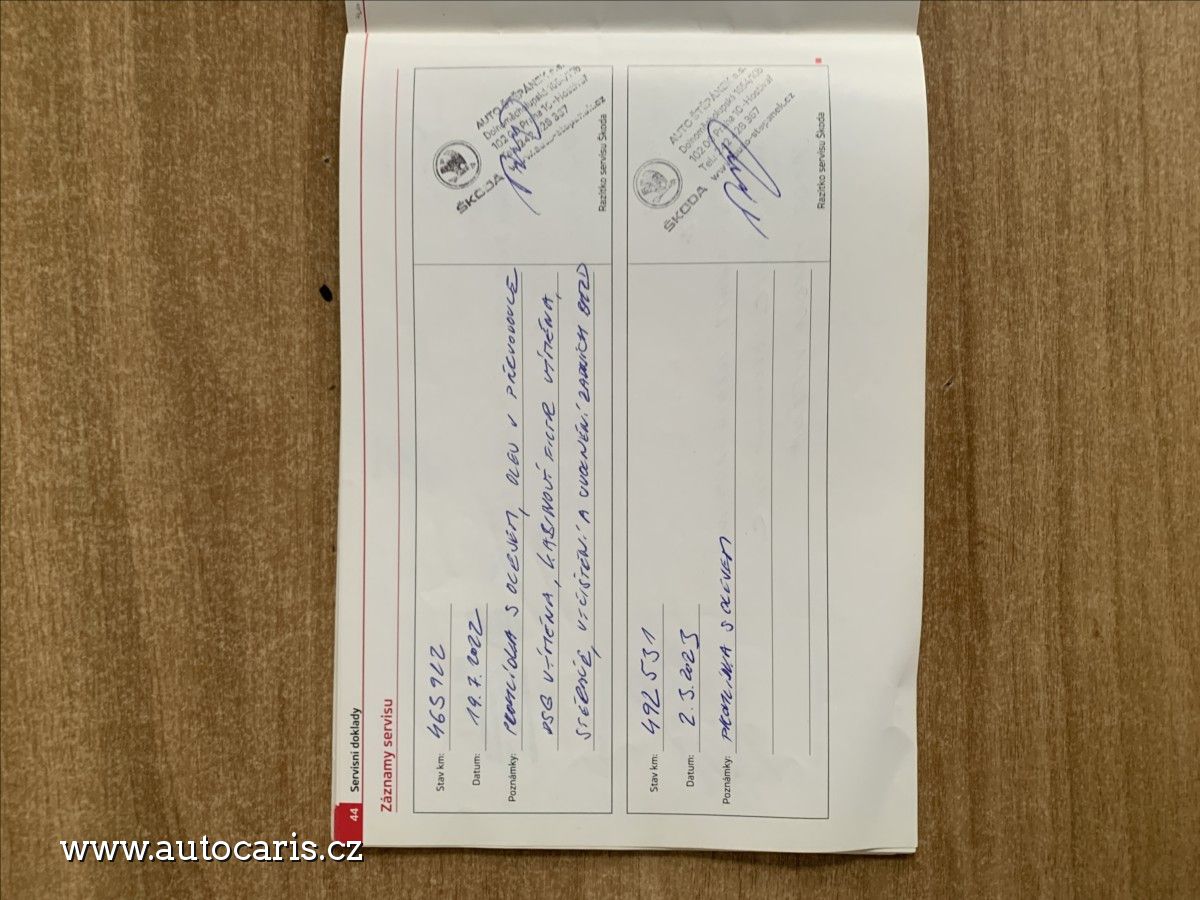 44 Servisní doklady
Záznamy servisu
Stav km: 465922
Datum: 19.7.2022
Poznámky: PROHLÍDKA S OLEJEM, OLEJ V PŘEVODOVCE
DSG VÝMĚNA, KABINOVÝ FILTR VÝMĚNA,
STĚRAČE, VYČIŠTĚNÍ A UVOLNĚNÍ ZADNÍCH BRZD
ŠKODA
AUTO ŠTĚPÁNEK a.s.
Dolnoměcholupská
102 00 Praha 10-Hostivař
www.auto-stepanek.cz
Razítko servisu Škoda
Stav km: 492 531
Datum: 2.3.2023
Poznámky: PROHLÍDKA S OLEJEM
ŠKODA
AUTO ŠTĚPÁNEK a.s.
Dolnoměcholupská
102 00 Praha 10-Hostivař
www.auto-stepanek.cz
Razítko servisu Škoda
www.autocaris.cz